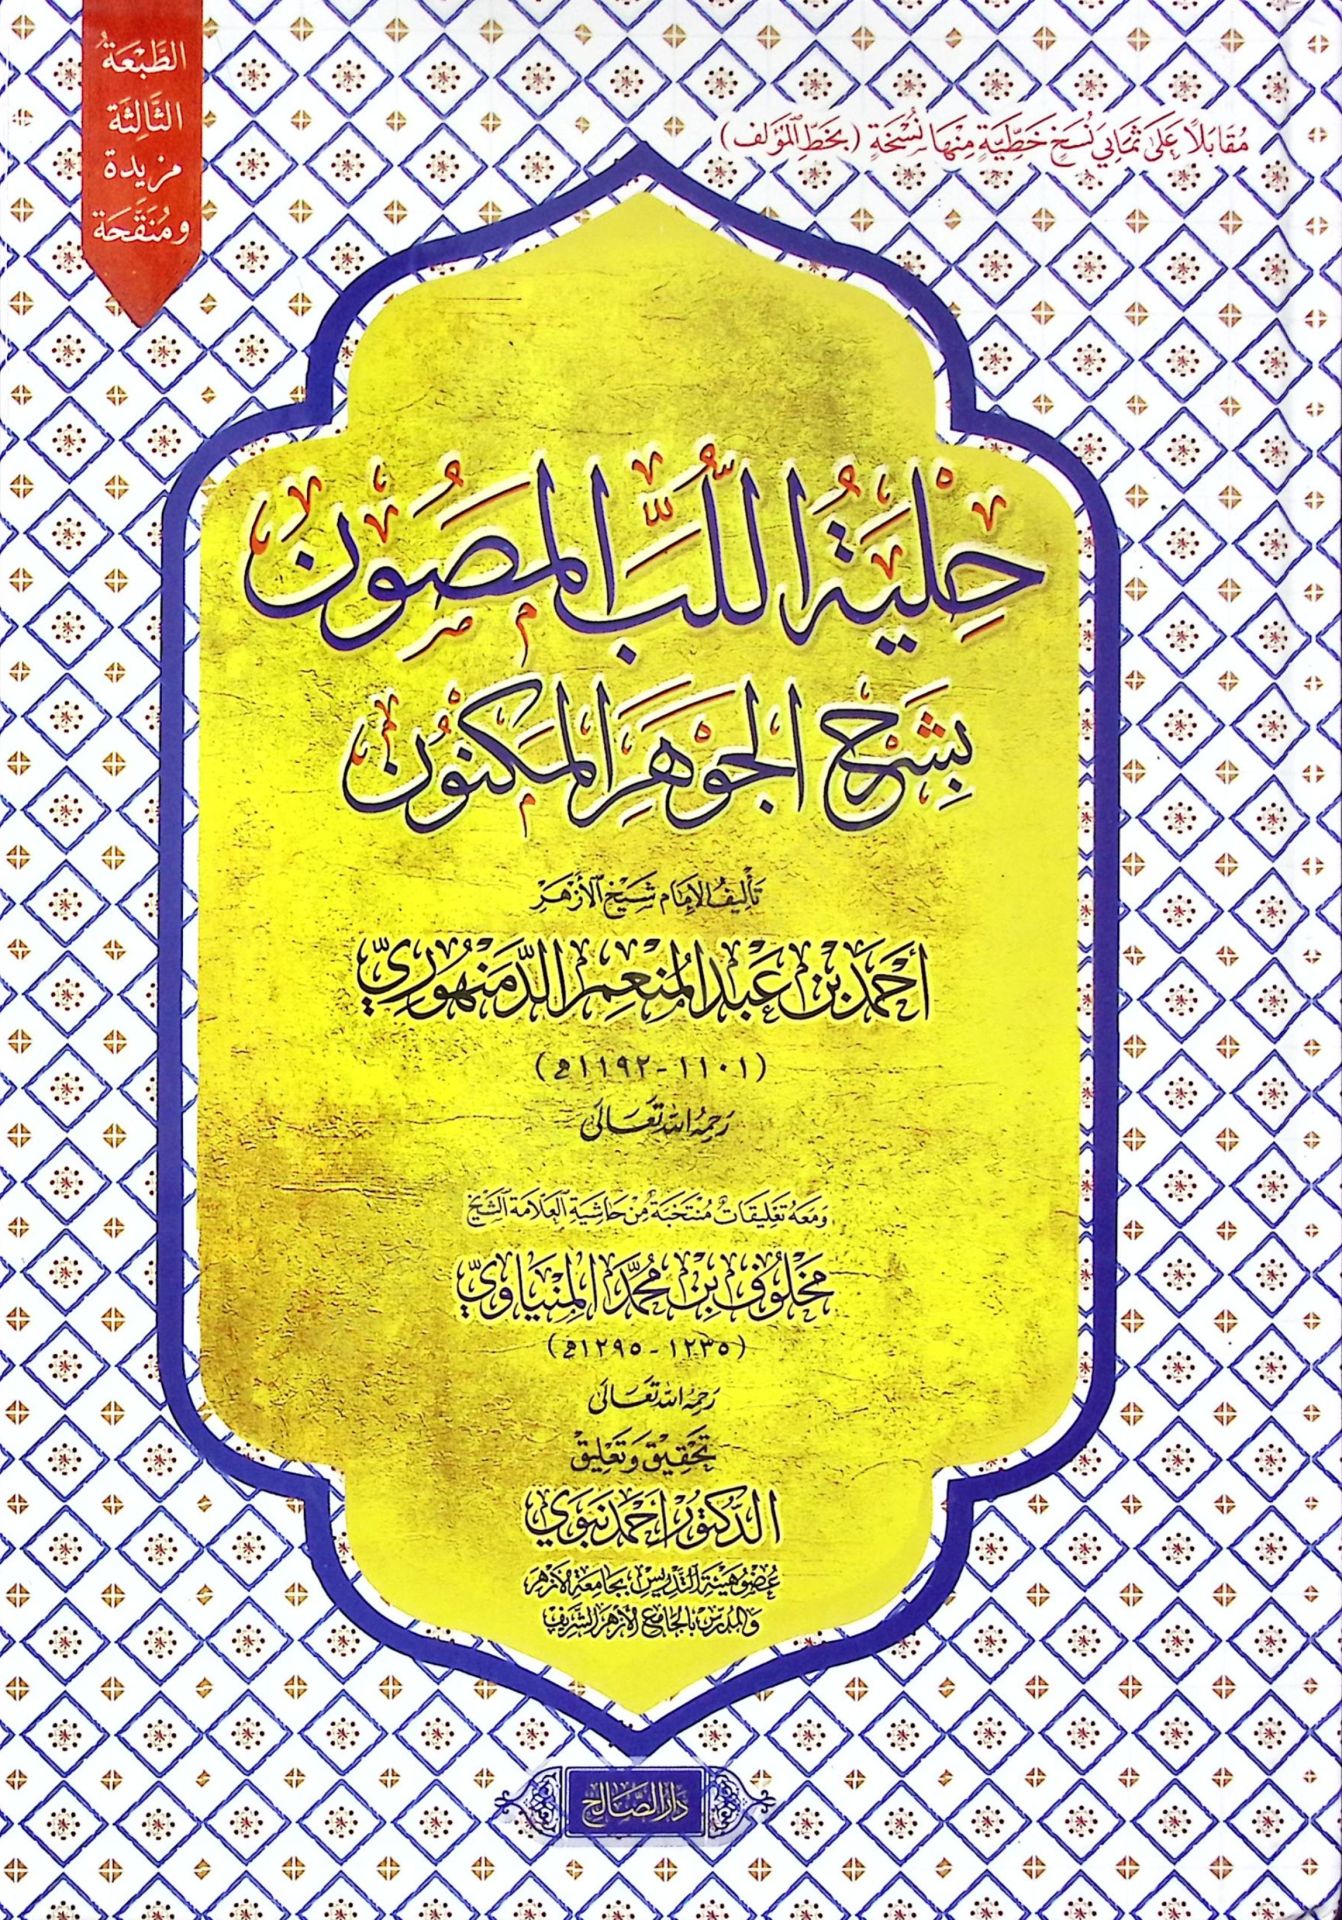 الطَّبْعَةُ
الثَّالِثَة
مزيدة
ومُنَقَّحَة
مُقَابَلًا عَلَى ثَمَانِي نُسَخٍ خَطِّيَّةٍ مِنْهَا نُسْخَة (بخَطِّ المُؤَلف)
حِلْيَةُ اللُّبِّ المَصُون
بِشَرْحِ الجَوْهَرِ المَكْنُون
تَأليفُ الإمَام شَيْخ الأزْهَرِ
أحْمَد بْن عَبْد المُنْعِم الدَّمَنْهُورِيّ
(١١٠١-١١٩٢هـ)
رَحِمَهُ اللهُ تَعَالَى
وَمَعَهُ تَعْلِيقَاتٌ مُنْتَخَبَةٌ مِنْ حَاشِيَةِ العَلَّامَة الشَّيْخ
مَخْلُوف بْن مُحَمَّد المِنْيَاوِيّ
(١٢٣٥-١٢٩٥هـ)
رَحِمَهُ اللهُ تَعَالَى
تَحْقِيق وَتَعْلِيق
الدُّكْتُور أَحْمَد نَبَوِي
عُضْو هَيْئَة التَّدْرِيس بجَامِعَة الأزْهَر
وَالمُدَرِّس بالجَامِع الأزْهَر الشَّرِيف
دَارُ الصَّالِح